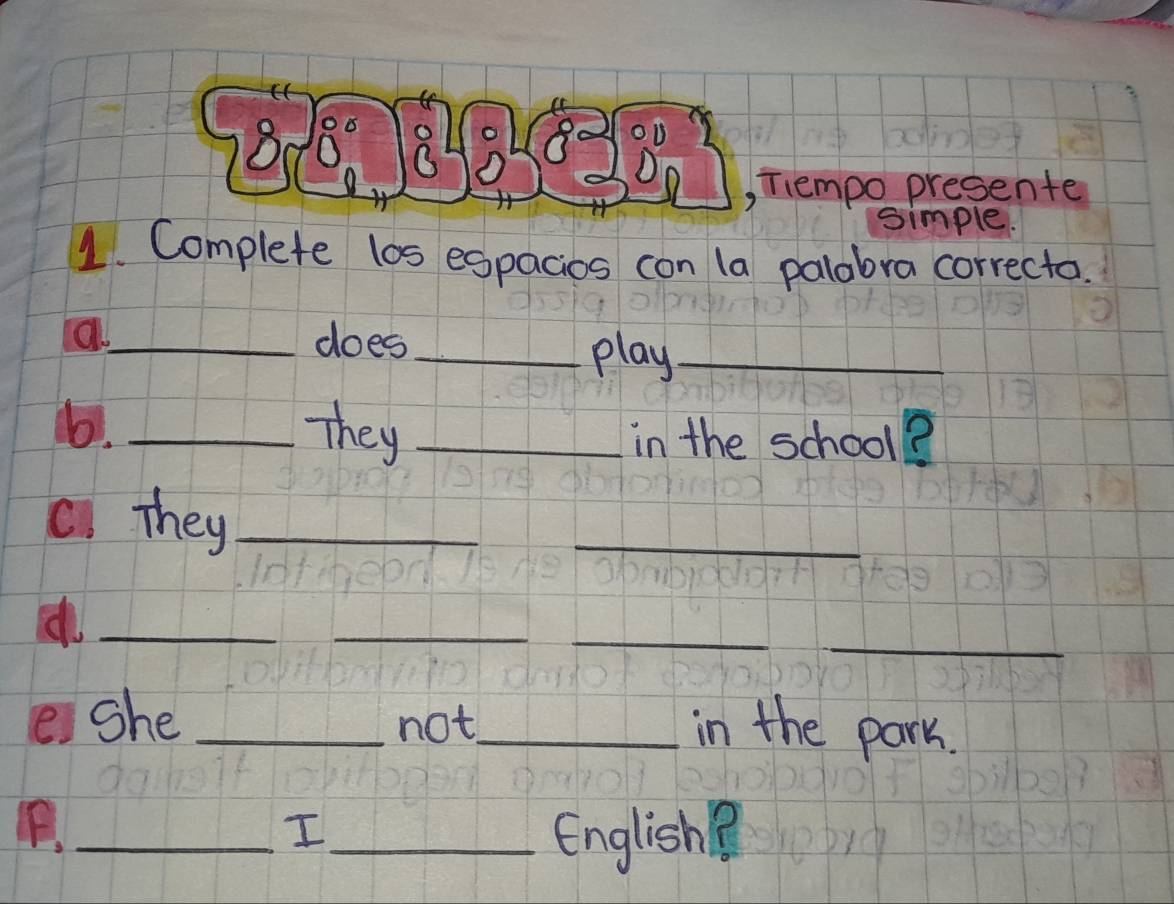 TALLER, Tiempo presente
simple.
1. Complete los espacios con la palabra correcta.
a. ______ does ______ play ______
b. ______ They ______ in the school?
c. They ______ ______
d. ______ ______ ______ ______
e. She ______ not ______ in the park.
F. ______ I ______ English?